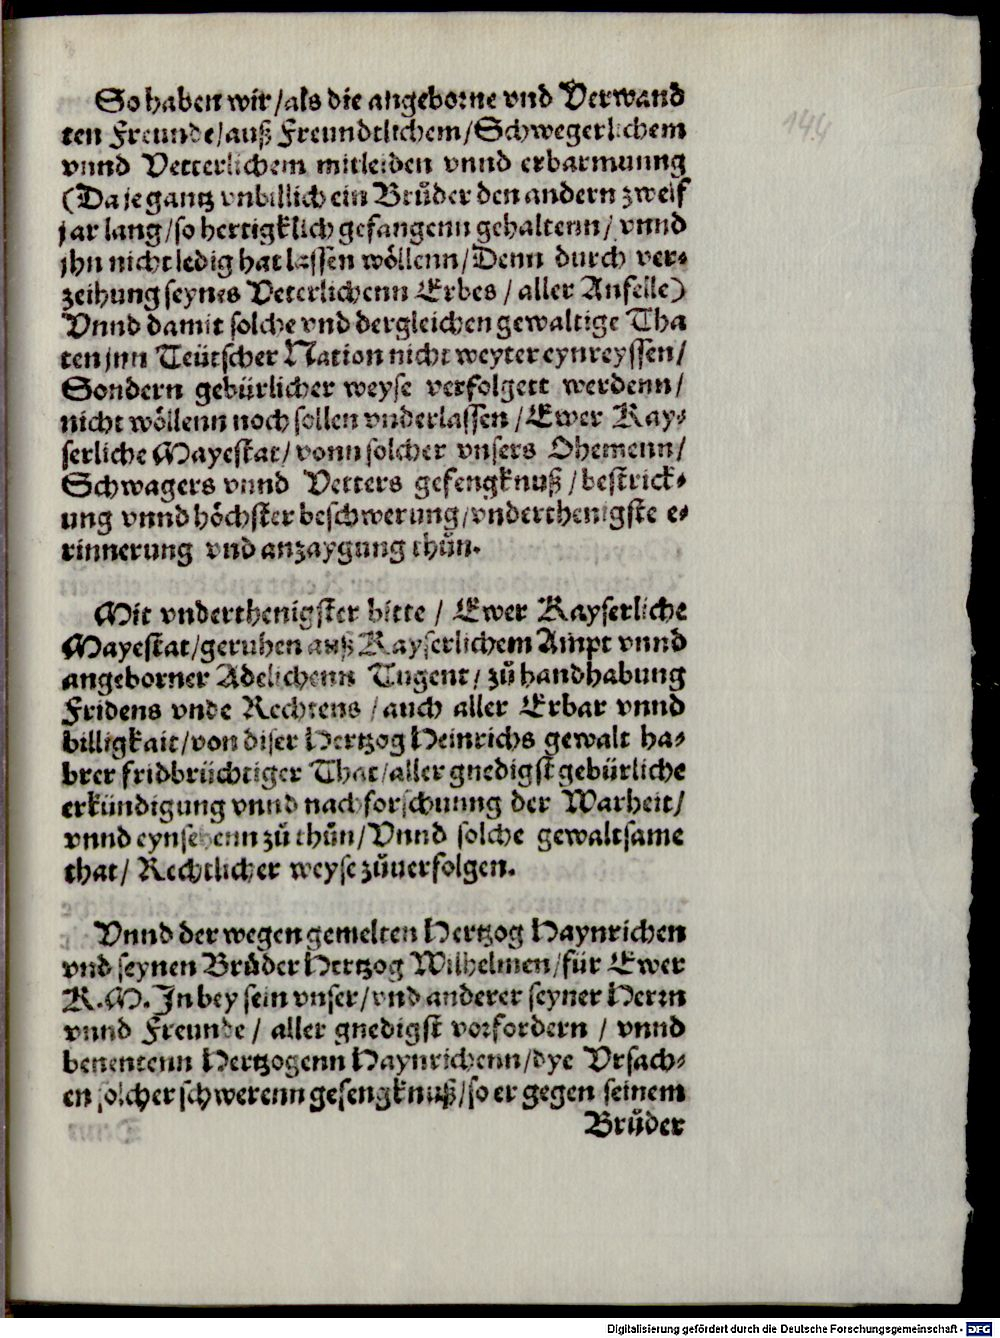 So haben wir/als die angeborne vnd Verwand
ten Freunde/auß Freundtlichem/Schwegerlichem
vnnd Vetterlichem mitleiden vnnd erbarmunng
(Da je gantz vnbillich ein Bruͦder den andern zwelf
jar lang/so hertigklich gefangenn gehaltenn/vnnd
jhn nicht ledig hat lassen woͤllenn/Denn durch ver-
zeihung seynes Veterlichenn Erbes/aller Anfelle)
Vnnd damit solche vnd dergleichen gewaltige Tha
ten jnn Teütscher Nation nicht weyter eynreyssen/
Sondern gebürlicher weyse verfolgett werdenn/
nicht woͤllenn noch sollen vnderlassen/Ewer Kay-
serliche Mayestat/vonn solcher vnsers Ohemenn/
Schwagers vnnd Vetters gefengknuß/bestrick-
ung vnnd hoͤchster beschwerung/vnderthenigste e-
rinnerung vnd anzaygung thuͦn.
Mit vnderthenigster bitte/Ewer Kayserliche
Mayestat/geruhen auß Kayserlichem Ampt vnnd
angeborner Adelichenn Tugent/zuͦ handhabung
Fridens vnde Rechtens/auch aller Erbar vnnd
billigkait/von diser Hertzog Heinrichs gewalt ha-
brer fridbrüchtiger That/aller gnedigst gebürliche
erkündigung vnnd nachforschunng der Warheit/
vnnd eynsehenn zuͦ thuͦn/Vnnd solche gewaltsame
that/Rechtlicher weyse zuͦuerfolgen.
Vnnd der wegen gemelten Hertzog Haynrichen
vnd seynen Bruͦder Hertzog Wilhelmen/für Ewer
K.M. Jn bey sein vnser/vnd anderer seyner Herrn
vnnd Freunde/aller gnedigst vorfordern/vnnd
benentenn Hertzogenn Haynrichenn/dye Vrsach-
en solcher schwerenn gefengknuß/so er gegen seinem
Bruͦder
144
Digitalisierung gefördert durch die Deutsche Forschungsgemeinschaft - DFG